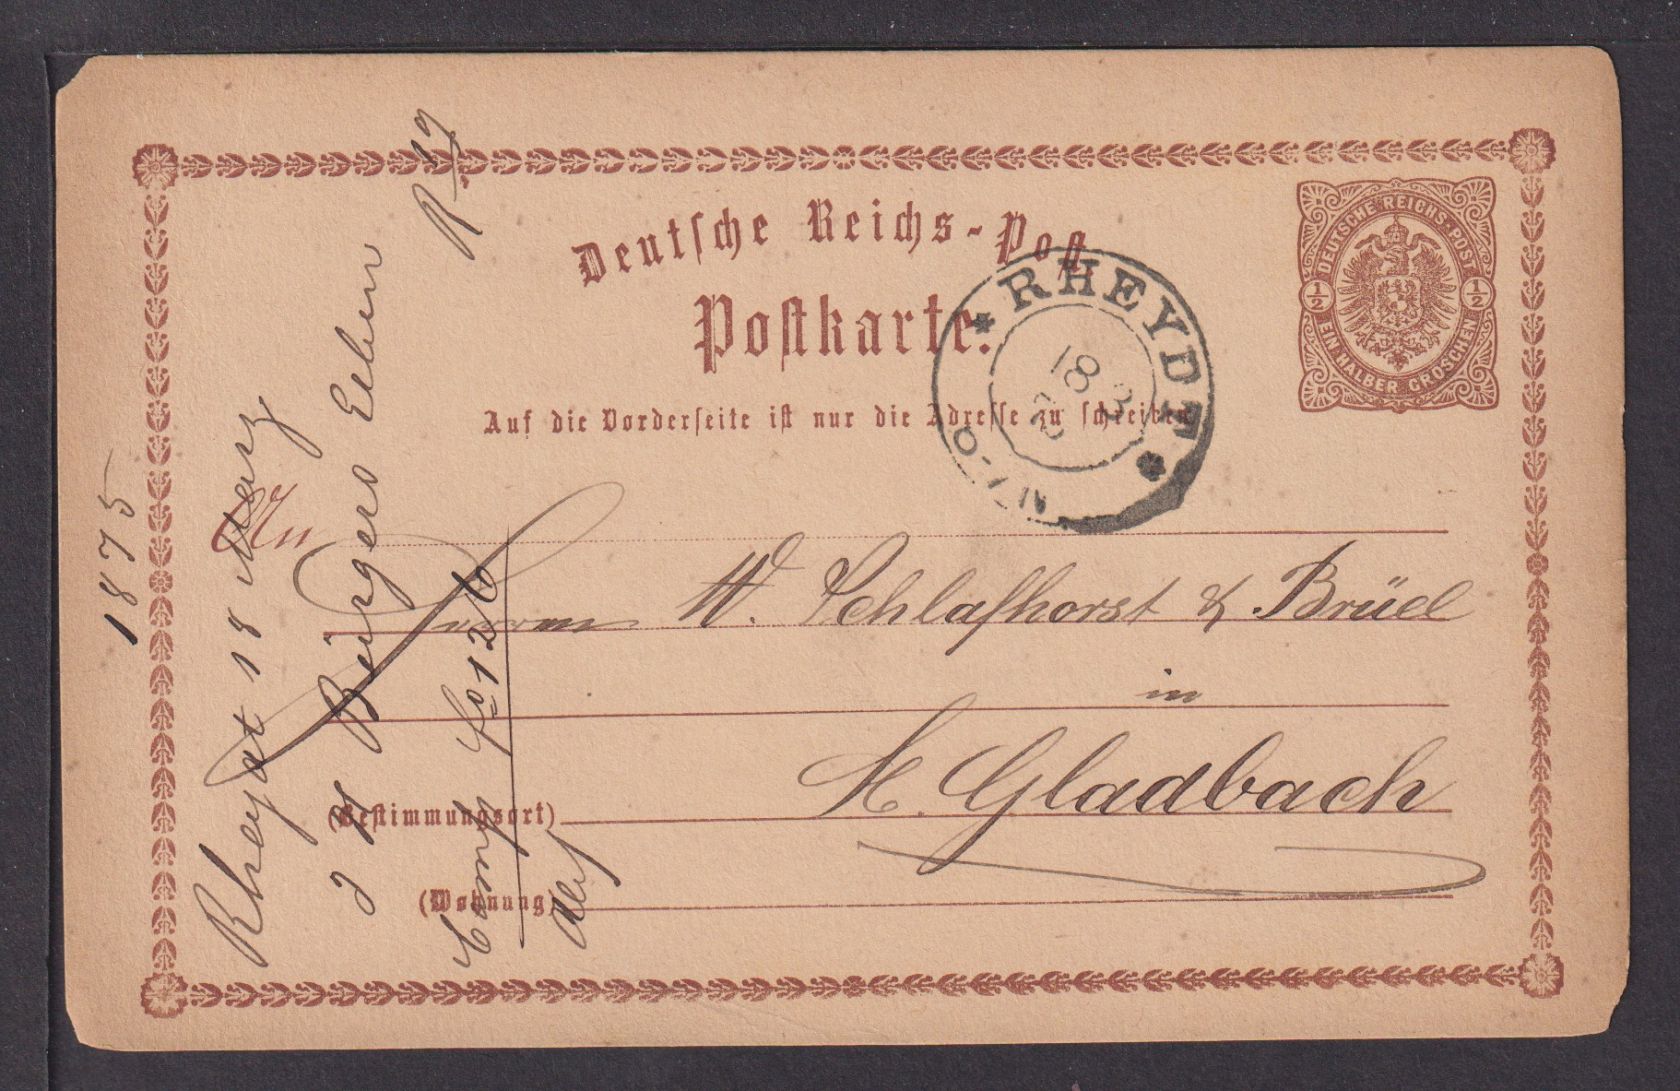 Deutsche Reichs-Post
Postkarte.
Auf die Vorderseite ist nur die Adresse zu schreiben.
DEUTSCHE REICHS-POST
1/2 1/2
EIN HALBER GROSCHEN
* RHEYDT *
18 3
An
Herrn W. Schlafhorst & Brüel
in
M. Gladbach
(Bestimmungsort)
(Wohnung)
1875
Rheydt 18 Merz
Bürgers
fo 126